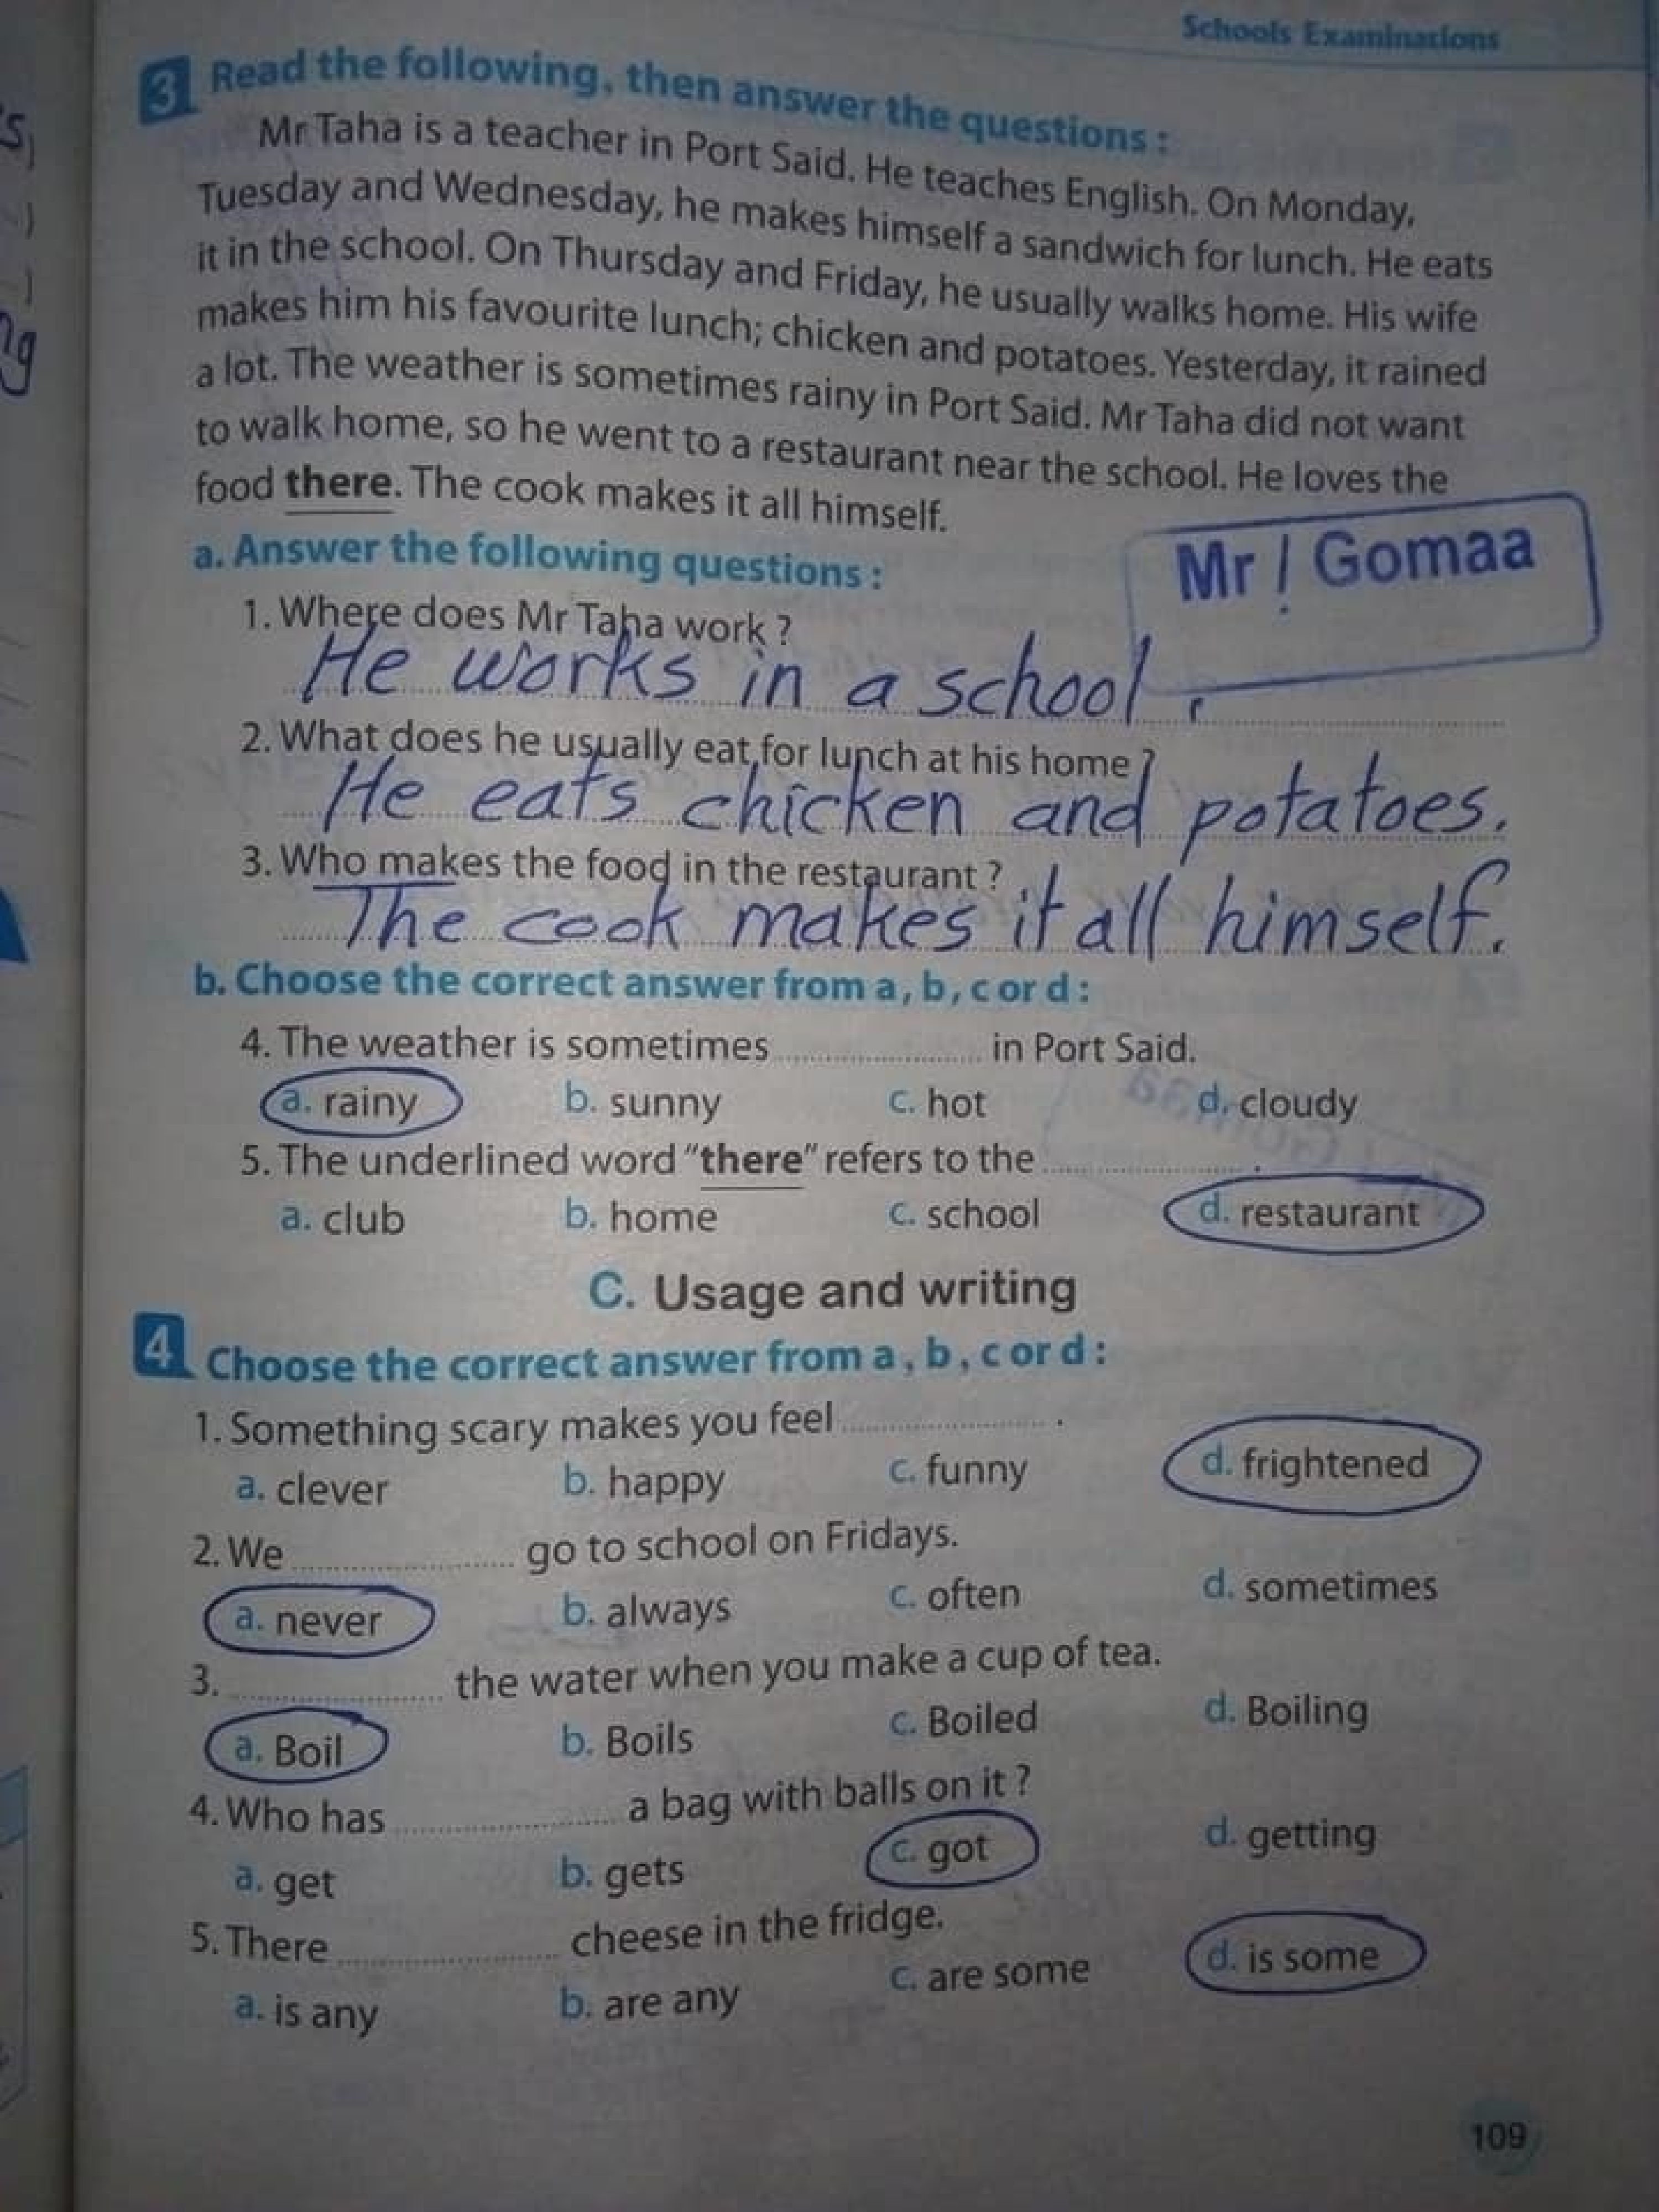 Schools Examinations
3 Read the following, then answer the questions :
Mr Taha is a teacher in Port Said. He teaches English. On Monday,
Tuesday and Wednesday, he makes himself a sandwich for lunch. He eats
it in the school. On Thursday and Friday, he usually walks home. His wife
makes him his favourite lunch; chicken and potatoes. Yesterday, it rained
a lot. The weather is sometimes rainy in Port Said. Mr Taha did not want
to walk home, so he went to a restaurant near the school. He loves the
food there. The cook makes it all himself.
Mr / Gomaa
a. Answer the following questions :
1. Where does Mr Taha work ?
He works in a school.
2. What does he usually eat for lunch at his home ?
He eats chicken and potatoes.
3. Who makes the food in the restaurant ?
The cook makes it all himself.
b. Choose the correct answer from a , b , c or d :
4. The weather is sometimes .................... in Port Said.
a. rainy b. sunny c. hot d. cloudy
5. The underlined word "there" refers to the .................... .
a. club b. home c. school d. restaurant
C. Usage and writing
4 Choose the correct answer from a , b , c or d :
1. Something scary makes you feel .................... .
a. clever b. happy c. funny d. frightened
2. We .................... go to school on Fridays.
a. never b. always c. often d. sometimes
3. .................... the water when you make a cup of tea.
a. Boil b. Boils c. Boiled d. Boiling
4. Who has .................... a bag with balls on it ?
a. get b. gets c. got d. getting
5. There .................... cheese in the fridge.
a. is any b. are any c. are some d. is some
109